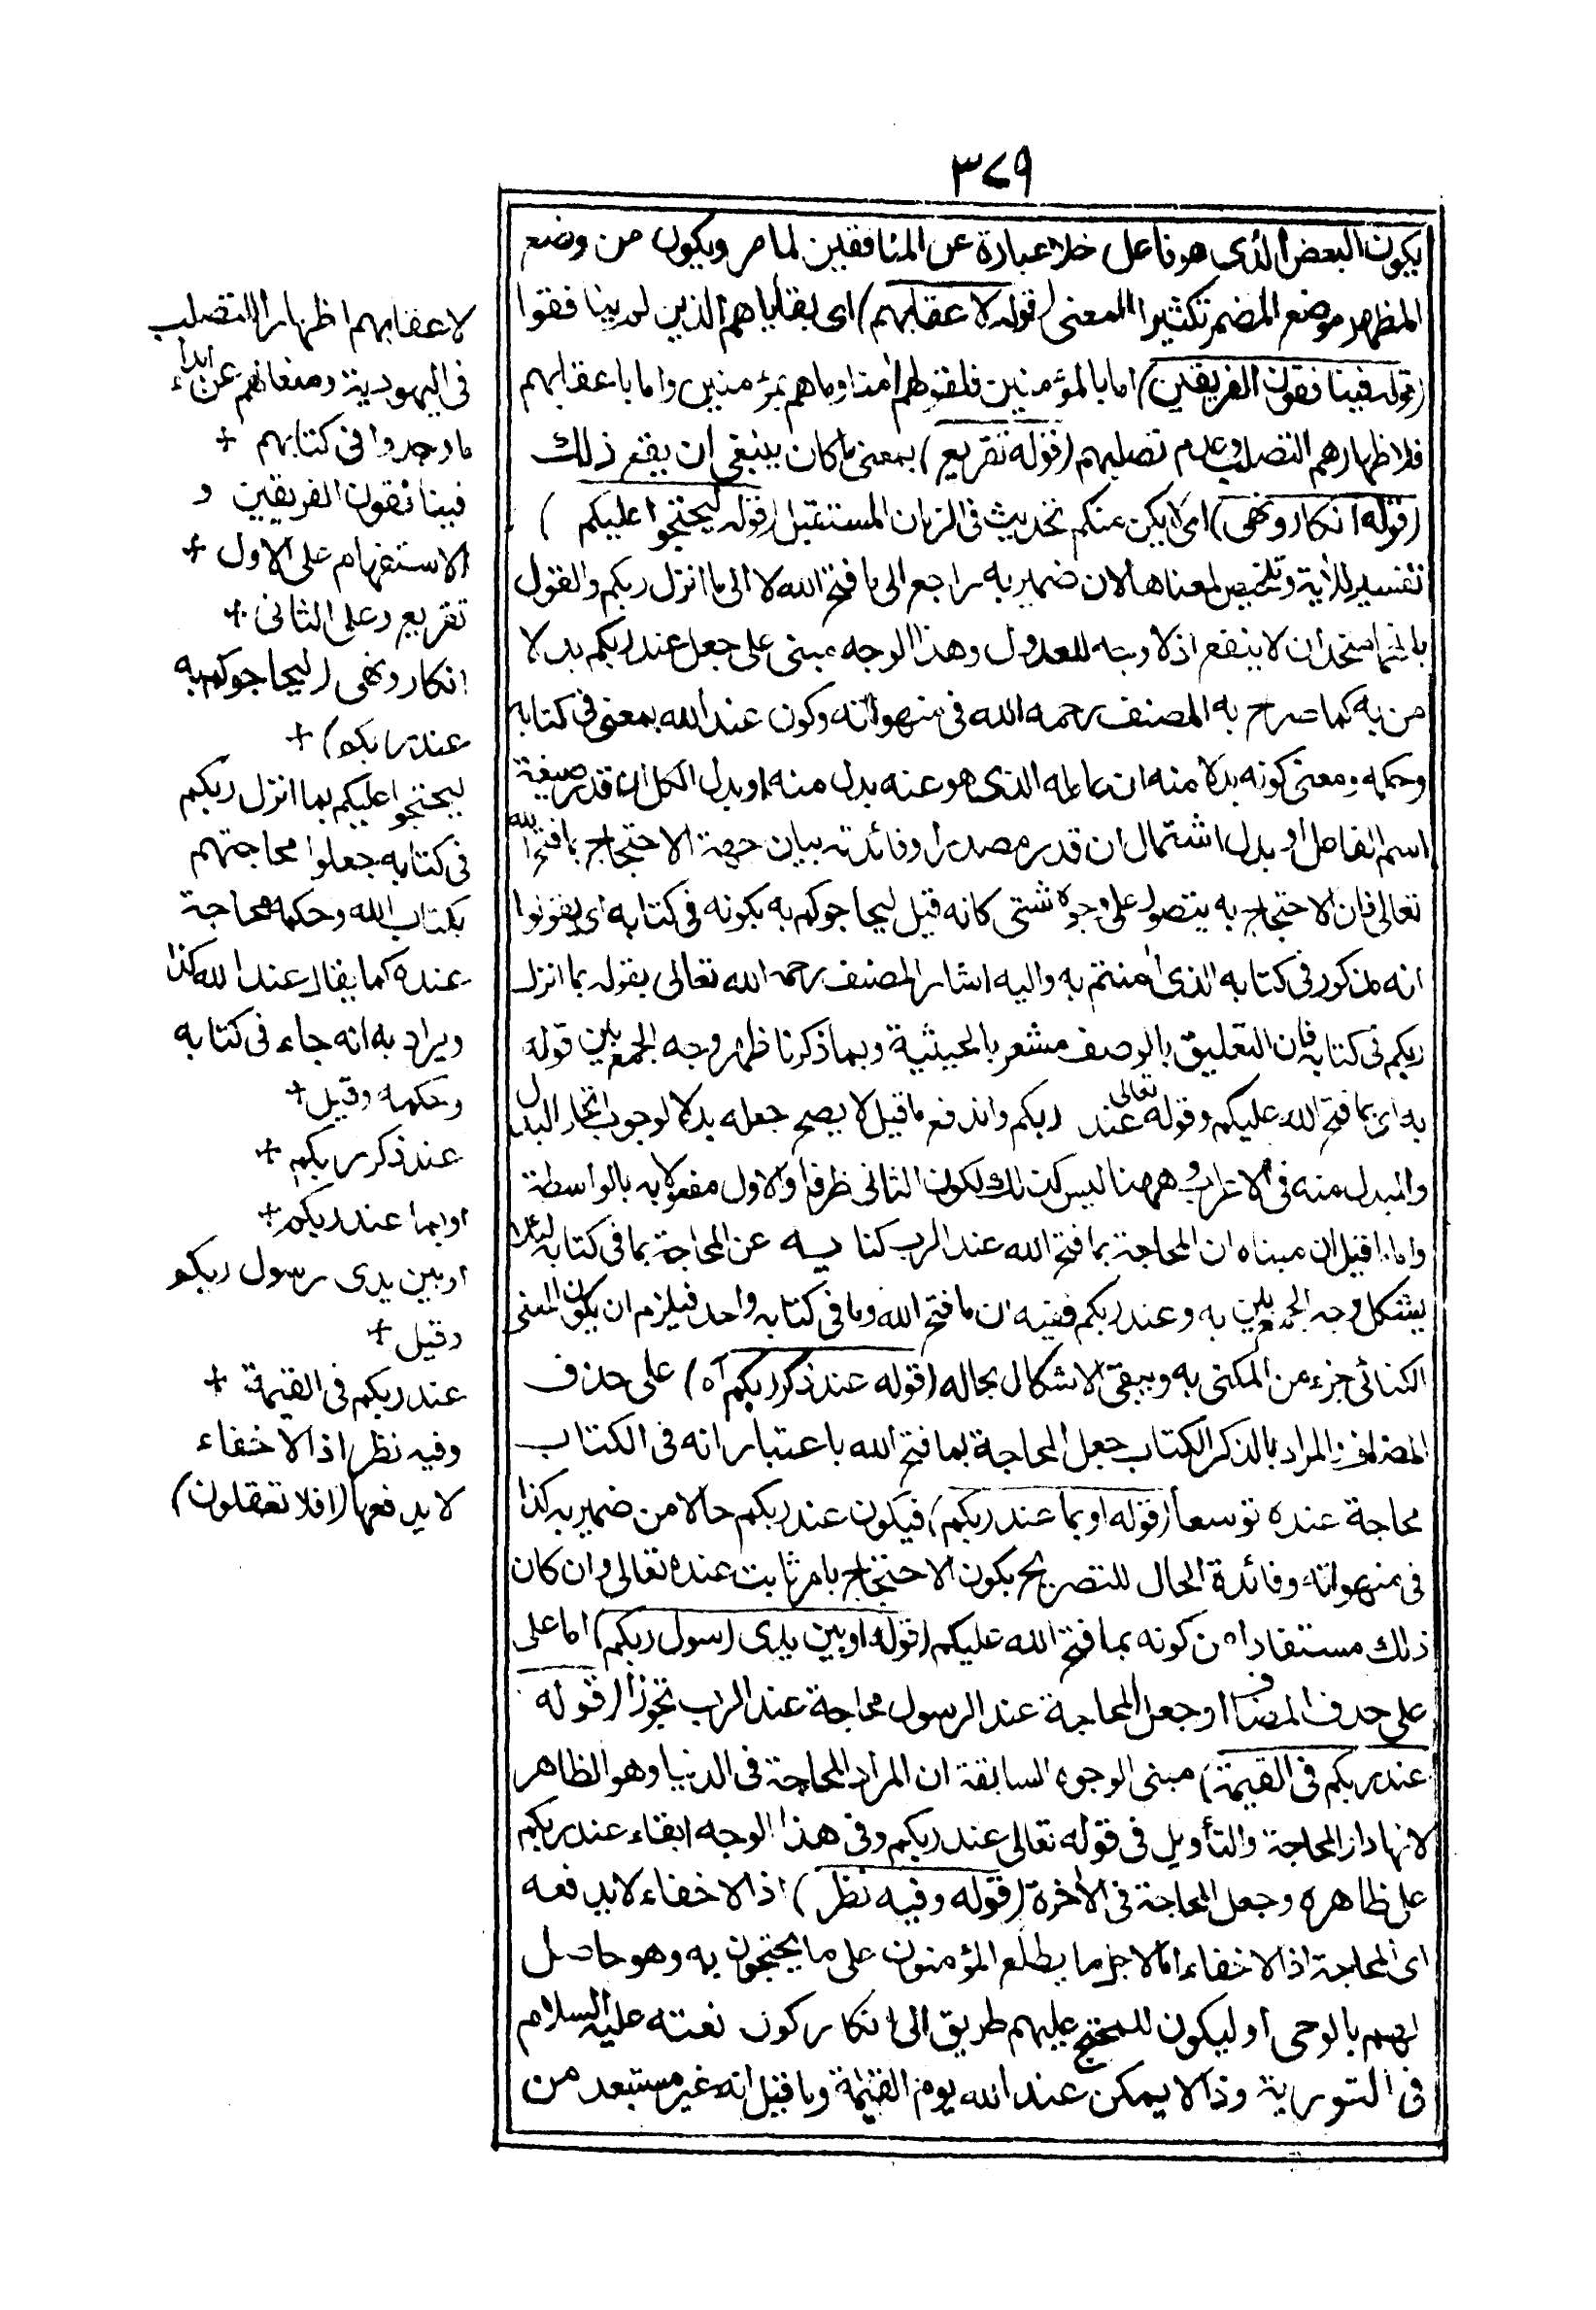 ٣٧٩
يكون البعض الذى هو فاعل خلا عبارة عن المنافقين لما مر ويكون من وضع
المظهر موضع المضمر تكثيرا للمعنى (قوله لاعقابهم) اى بقاياهم الذين لم ينافقوا
(قوله فينافقون الفريقين) اما بالمؤمنين فلقولهم اٰمنا وما هم بمؤمنين واما باعقابهم
فلاظهارهم التصلب وعدم تصلبهم (قوله تقريع) بمعنى ما كان ينبغى ان يقع ذلك
(قوله انكار ونهى) اى لا يكن منكم تحديث فى الزمان المستقبل (قوله ليحتجوا عليكم)
تفسير للاٰية وتلخيص لمعناها لان ضمير به راجع الى ما فتح الله لا الى ما انزل ربكم والقول
بانهما متحدان لا ينفع اذ لا وجه للعدول وهذا الوجه مبنى على جعل عند ربكم بدلا
من به كما صرح به المصنف رحمه الله فى منهواته وكون عند الله بمعنى فى كتابه
وحكمه ومعنى كونه بدلا منه ان عامله الذى هو عنه بدل منه او بدل الكل ان قدر صيغة
اسم الفاعل او بدل اشتمال ان قدر مصدرا وفائدته بيان جهة الاحتجاج بما فتح الله
تعالى فان الاحتجاج به يتصور على وجوه شتى كانه قيل ليحاجوكم به بكونه فى كتابه اى يقولوا
انه مذكور فى كتابه الذى اٰمنتم به واليه اشار المصنف رحمه الله تعالى بقوله بما انزل
ربكم فى كتابه فان التعليق بالوصف مشعر بالحيثية وبما ذكرنا ظهر وجه الجمع بين قوله
به اى بما فتح الله عليكم وقوله تعالى عند ربكم واندفع ما قيل لا يصح جعله بدلا لوجوب اتحاد البدل
والمبدل منه فى الاعراب وههنا ليس كذلك لكون الثانى ظرفا والاول مفعولا به بالواسطة
واما ما قيل ان مبناه ان المحاجة بما فتح الله عند الرب كناية عن المحاجة بما فى كتابه لئلا
يشكل وجه الجمع بين به وعند ربكم ففيه ان ما فتح الله وما فى كتابه واحد فيلزم ان يكون المعنى
الكنائى جزء من المكنى به ويبقى الاشكال بحاله (قوله عند ذكر ربكم اٰه) على حذف
المضاف والمراد بالذكر الكتاب جعل المحاجة بما فتح الله باعتبار انه فى الكتاب
محاجة عنده توسعا (قوله او بما عند ربكم) فيكون عند ربكم حالا من ضمير به كذا
فى منهواته وفائدة الحال للتصريح بكون الاحتجاج بامر ثابت عنده تعالى وان كان
ذلك مستفادا من كونه بما فتح الله عليكم (قوله او بين يدى رسول ربكم) اما على
على حذف المضاف او جعل المحاجة عند الرسول محاجة عند الرب تجوزا (قوله
عند ربكم فى القيٰمة) مبنى الوجوه السابقة ان المراد المحاجة فى الدنيا وهو الظاهر
لانها دار المحاجة والتأويل فى قوله تعالى عند ربكم وفى هذا الوجه ابقاء عند ربكم
على ظاهره وجعل المحاجة فى الاٰخرة (قوله وفيه نظر) اذ الاخفاء لا يدفعه
اى المحاجة اذ الاخفاء اما لاجل ما يطلع المؤمنون على ما يحتجون به وهو حاصل
لهم بالوحى او ليكون للمحتج عليهم طريق الى انكار كون نعته عليه السلام
فى التورية وذا لا يمكن عند الله يوم القيٰمة وما قيل انه غير مستبعد من
لاعقابهم اظهارا للتصلب
فى اليهودية ومنعا لهم عن ابداء
ما وجدوا فى كتابهم +
فينافقون الفريقين و
الاستفهام على الاول +
تقريع وعلى الثانى +
انكار ونهى (ليحاجوكم به
عند ربكم) +
ليحتجوا عليكم بما انزل ربكم
فى كتابه جعلوا محاجتهم
بكتاب الله وحكمه محاجة
عنده كما يقال عند الله كذا
ويراد به انه جاء فى كتابه
وحكمه وقيل +
عند ذكر ربكم +
او بما عند ربكم +
او بين يدى رسول ربكم
وقيل +
عند ربكم فى القيٰمة +
وفيه نظر اذ الاخفاء
لا يدفعها (افلا تعقلون)